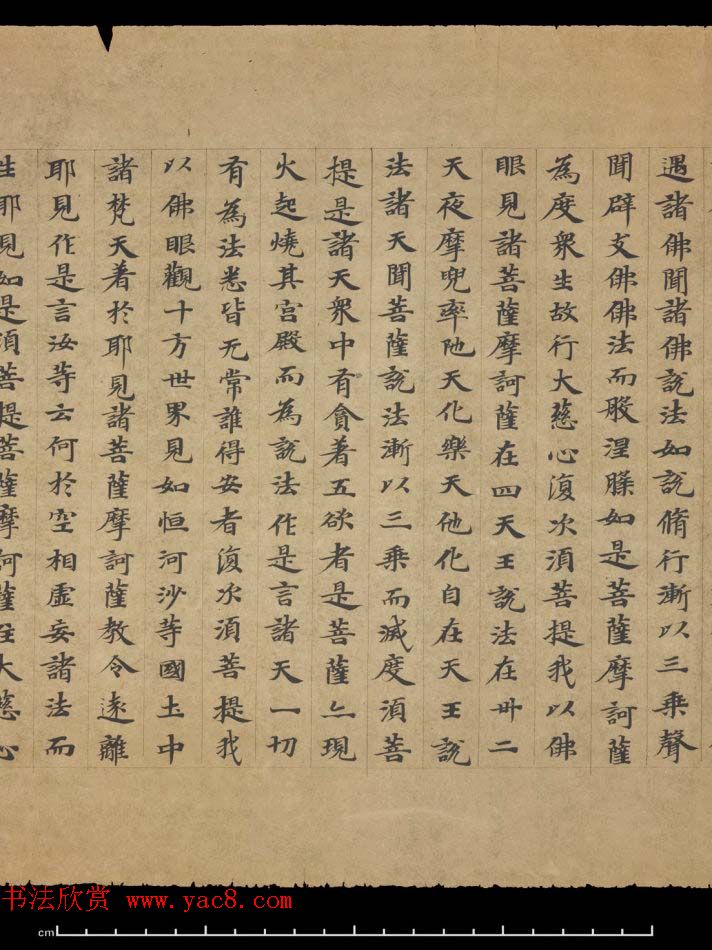 遇諸佛聞諸佛說法如說脩行漸以三乘聲
聞辟支佛佛法而般涅槃如是菩薩摩訶薩
為度眾生故行大慈心復次須菩提我以佛
眼見諸菩薩摩訶薩在四天王說法在卅二
天夜摩兜率陁天化樂天他化自在天王說
法諸天聞菩薩說法漸以三乘而滅度須菩
提是諸天眾中有貪著五欲者是菩薩亦現
火起燒其宮殿而為說法作是言諸天一切
有為法悉皆无常誰得安者復次須菩提我
以佛眼觀十方世界見如恒河沙等國土中
諸梵天著於耶見諸菩薩摩訶薩教令遠離
耶見作是言汝等云何於空相虛妄諸法而
生耶見如是須菩提菩薩摩訶薩住大慈心
书法欣赏 www.yac8.com
cm